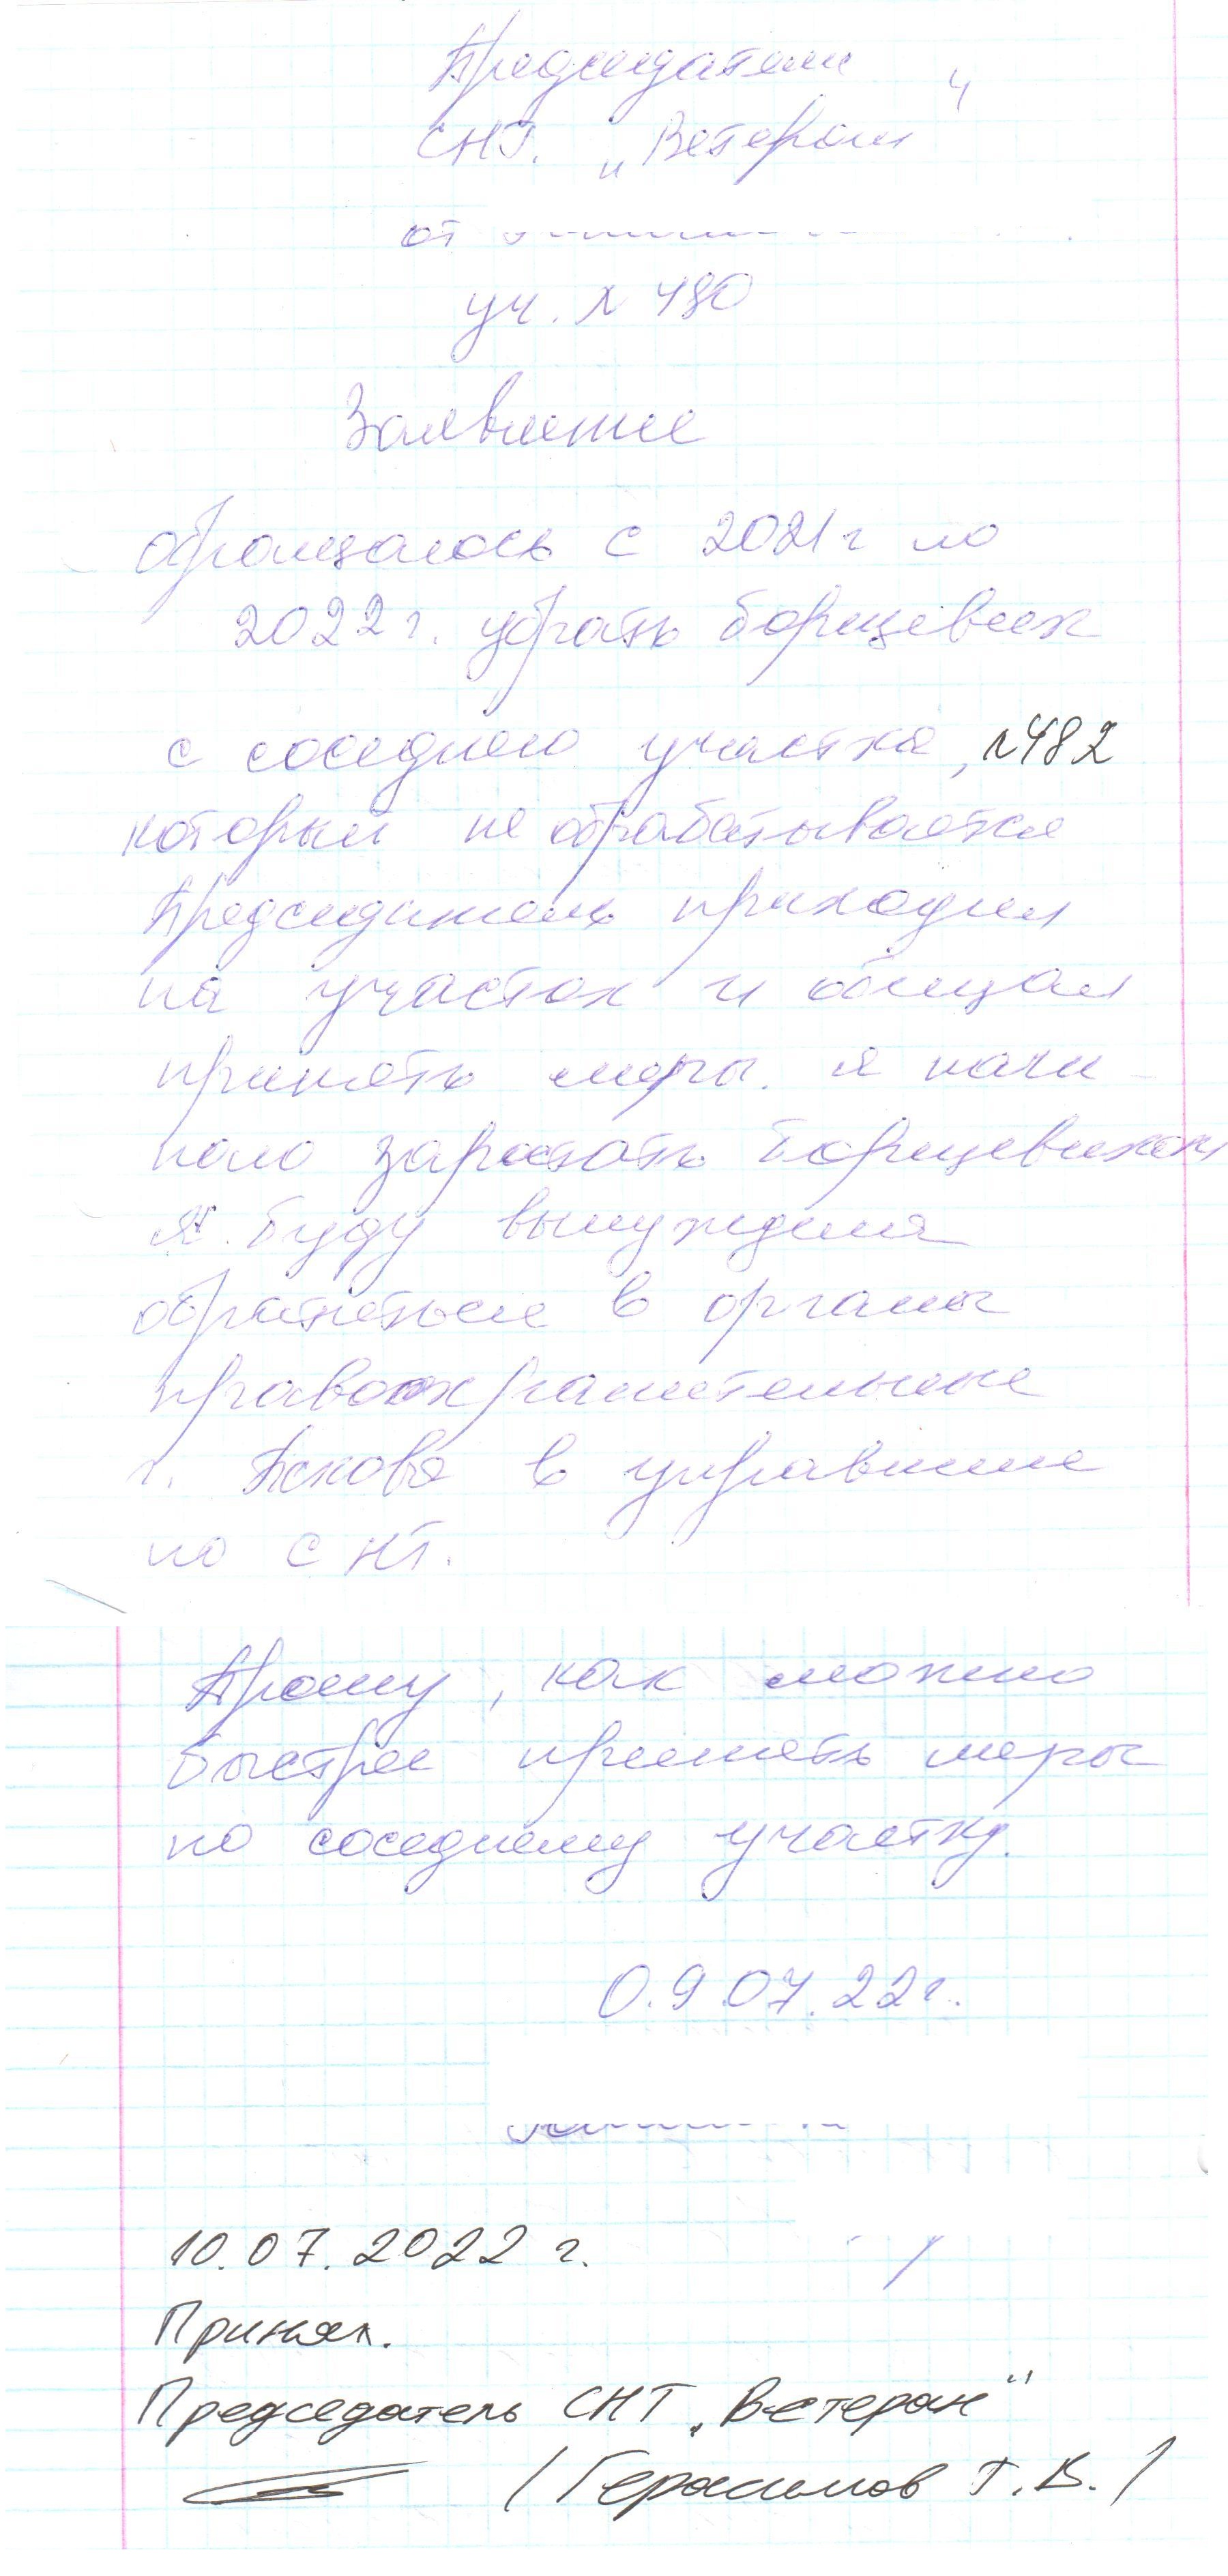 Председателю
СНТ. „Ветеран"
от
уч. № 480
Заявление
обращалась с 2021г по
2022г. убрать борщевик
с соседнего участка, №482
который не обрабатывается
Председатель приходил
на участок и обещал
принять меры. я начи-
наю зарастать борщевиком
Я буду вынуждена
обратиться в органы
правоохранительные
г. Пскова в управление
по СНТ.
Прошу, как можно
быстрее принять меры
по соседнему участку.
0.9.07.22г.
10.07.2022 г.
Принял.
Председатель СНТ „Ветеран"
/Герасимов Г.В./